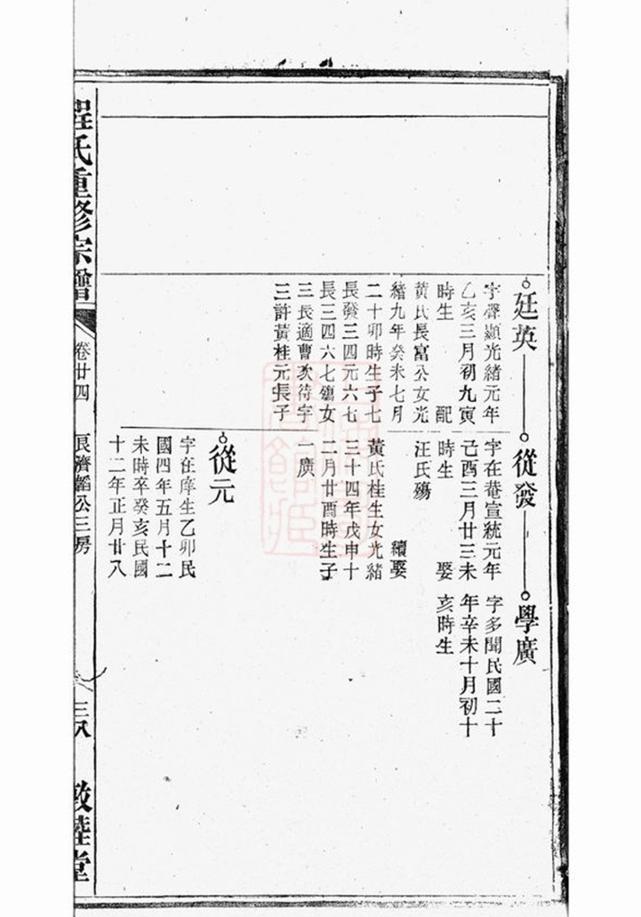 廷英
字聲顯光緒元年
乙亥三月初九寅
時生 配
黃氏長富公女光
緒九年癸未七月
二十卯時生子七
長發三四元六七
長三四六七殤女
三長適曹次待字
三許黃桂元長子
從發
字在菴宣統元年
己酉三月廿三未
時生 娶
汪氏殤
續娶
黃氏桂生女光緒
三十四年戊申十
二月廿酉時生子
一廣
從元
字在庠生乙卯民
國四年五月十二
未時卒癸亥民國
十二年正月廿八
學廣
字多聞民國二十
年辛未十月初十
亥時生
程氏重修宗譜
卷廿四
良濟韜公三房
三八
敦睦堂